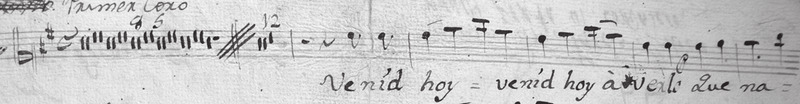 Primer Coro
95 12
Venid hoy = venid hoy à Que na =